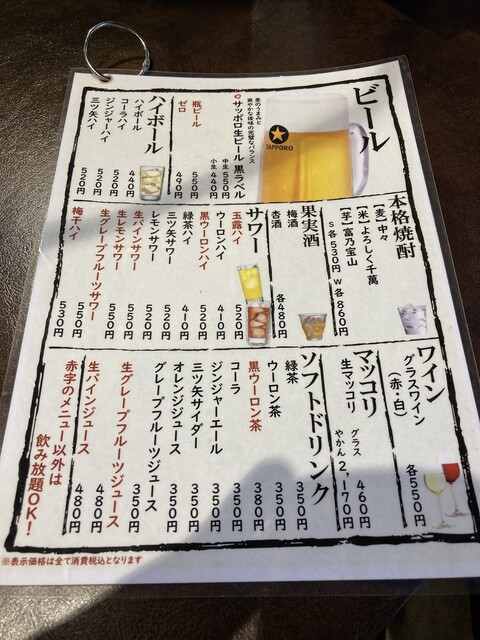 ビール
SAPPORO
麦のうまみと
爽やかな後味の完璧なバランス
サッポロ生ビール 黒ラベル
中生 550円
小生 440円
瓶ビール 550円
ゼロ 490円
ハイボール
ハイボール 440円
コーラハイ 520円
ジンジャーハイ 520円
三ツ矢ハイ 520円
本格焼酎
【麦】中々
【米】よろしく千萬
【芋】富乃宝山
S各530円 W各860円
果実酒
梅酒
杏酒
各480円
サワー
玉露ハイ 520円
ウーロンハイ 410円
黒ウーロンハイ 520円
緑茶ハイ 410円
三ツ矢サワー 520円
レモンサワー 520円
生パインサワー 550円
生レモンサワー 550円
生グレープフルーツサワー 550円
梅干ハイ 530円
ワイン
グラスワイン
(赤・白)
各550円
マッコリ
生マッコリ
グラス 460円
やかん 2,170円
ソフトドリンク
緑茶 350円
ウーロン茶 350円
黒ウーロン茶 380円
コーラ 350円
ジンジャーエール 350円
三ツ矢サイダー 350円
オレンジジュース 350円
グレープフルーツジュース 350円
生グレープフルーツジュース 480円
生パインジュース 480円
赤字のメニュー以外は
飲み放題OK!
※表示価格は全て消費税込となります